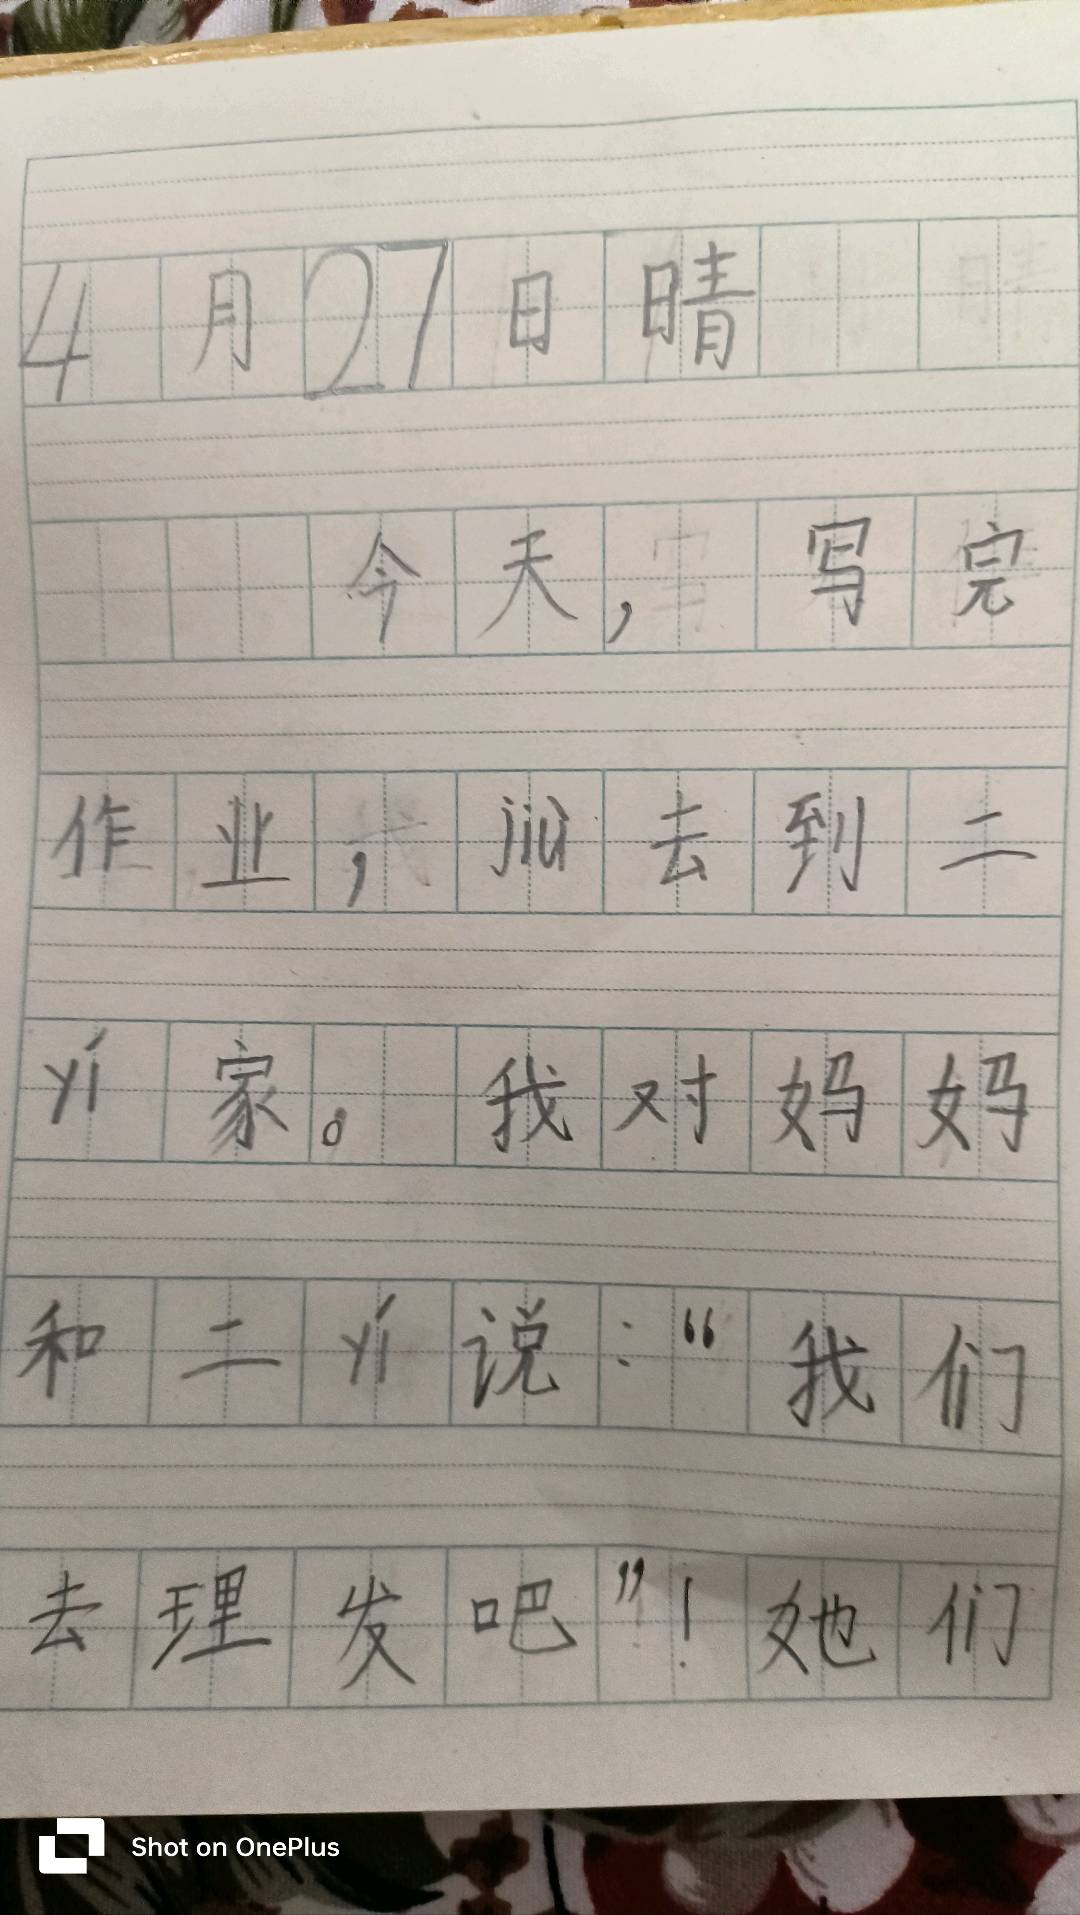 4月27日晴
今天，写完
作业，jiù去到二
yí家。我对妈妈
和二yí说：“我们
去理发吧”！她们
Shot on OnePlus